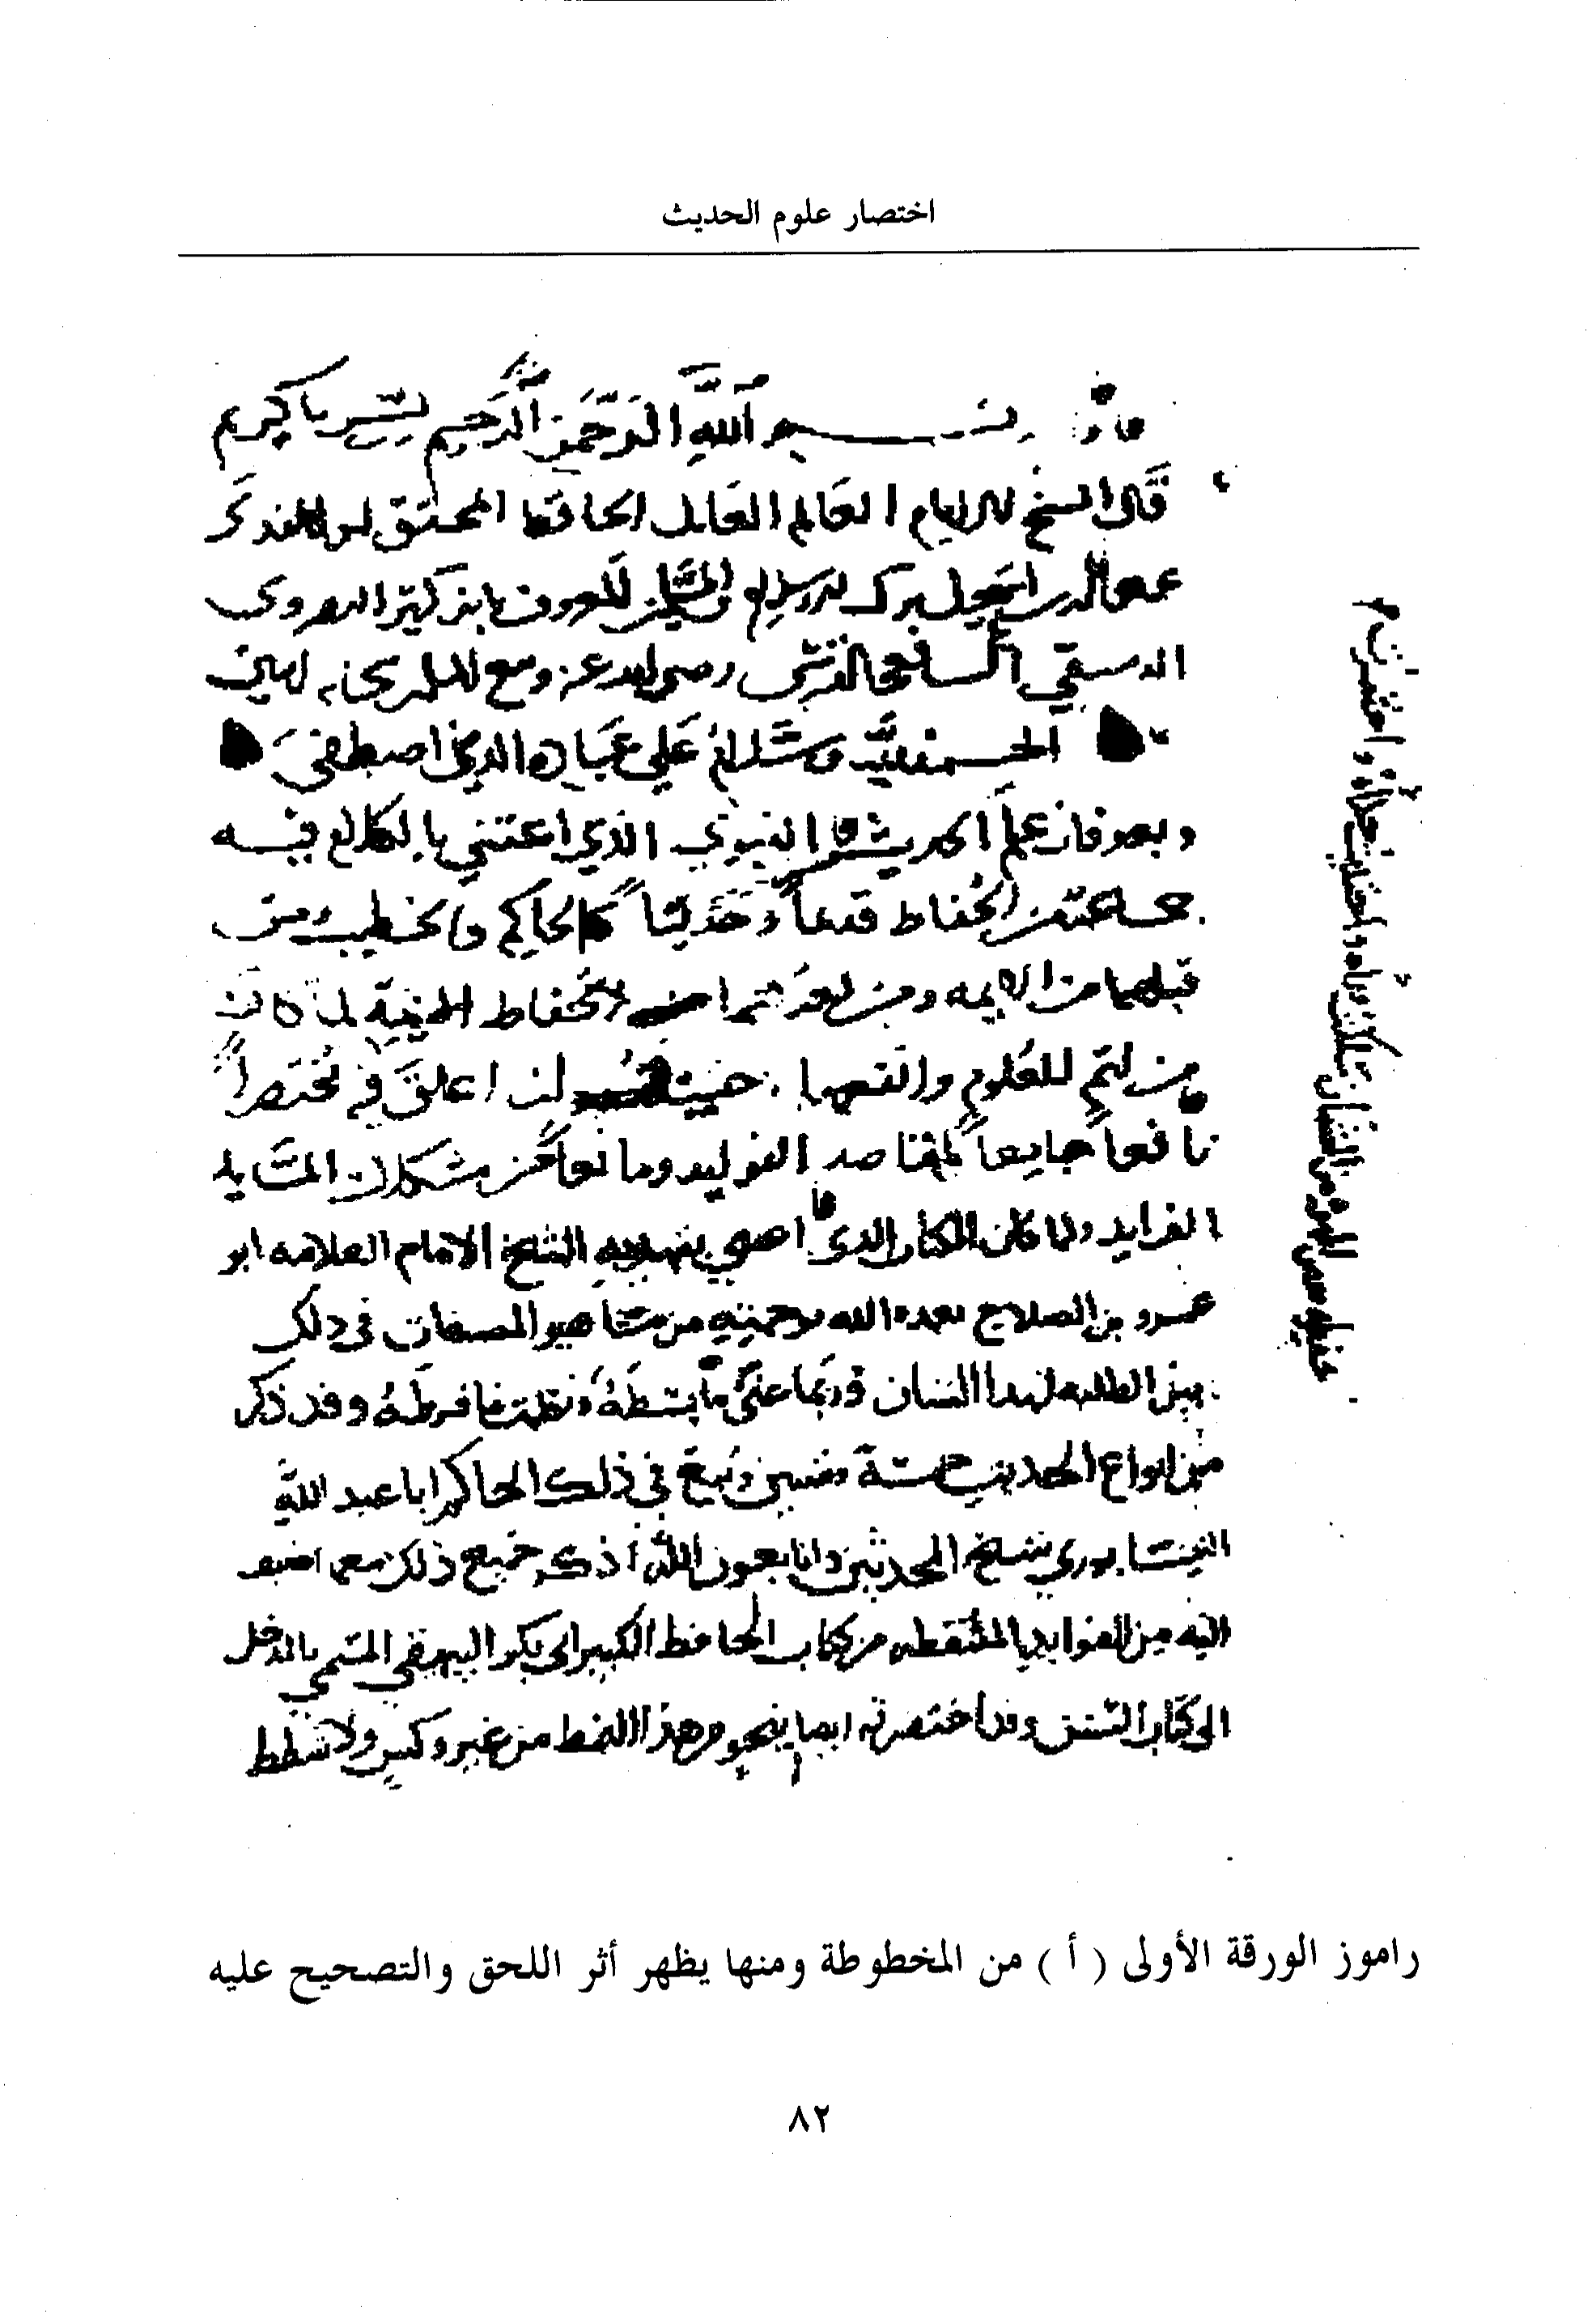 اختصار علوم الحديث
بسم الله الرحمن الرحيم يسر يا كريم
قال الشيخ الامام العالم العامل الحافظ المحقق
المعروف بابن كثير
الشافعي القرشي رضي الله عنه
الحمد لله وسلام علي عباده الذين اصطفي
وبعد فان علم الحديث النبوي الذي اعتني بالكلام فيه
جماعة من الحفاظ قديما وحديثا كالحاكم والخطيب ومن
قبلهما من الايمه ومن بعدهما من الحفاظ لما كان
من اهم العلوم وانفعها احببت ان اعلق فيه مختصرا
نافعا جامعا لمقاصد الفوايد ومانعا من مشكلات المسايل
الفرايد ولما كان الكتاب الذي اعتني بتهذيبه الشيخ الامام العلامه ابو
عمرو بن الصلاح تغمده الله برحمته من مشاهير المصنفات في ذلك
بين الطلبه لهذا الشان وربما عني بسطه ونظمت ما فرطه وقد ذكر
من انواع الحديث خمسة وستين وتبع في ذلك الحاكم ابا عبد الله
النيسابوري شيخ المحدثين وانا بعون الله اذكر جميع ذلك مع ما اضيف
اليه من الفوايد الملتقطه من كتاب الحافظ الكبير ابي بكر البيهقي المسمي بالمدخل
الي كتاب السنن وقد اختصرته ايضا بنحو من هذا النمط من غير وكس ولا شطط
راموز الورقة الأولى ( أ ) من المخطوطة ومنها يظهر أثر اللحق والتصحيح عليه
٨٢